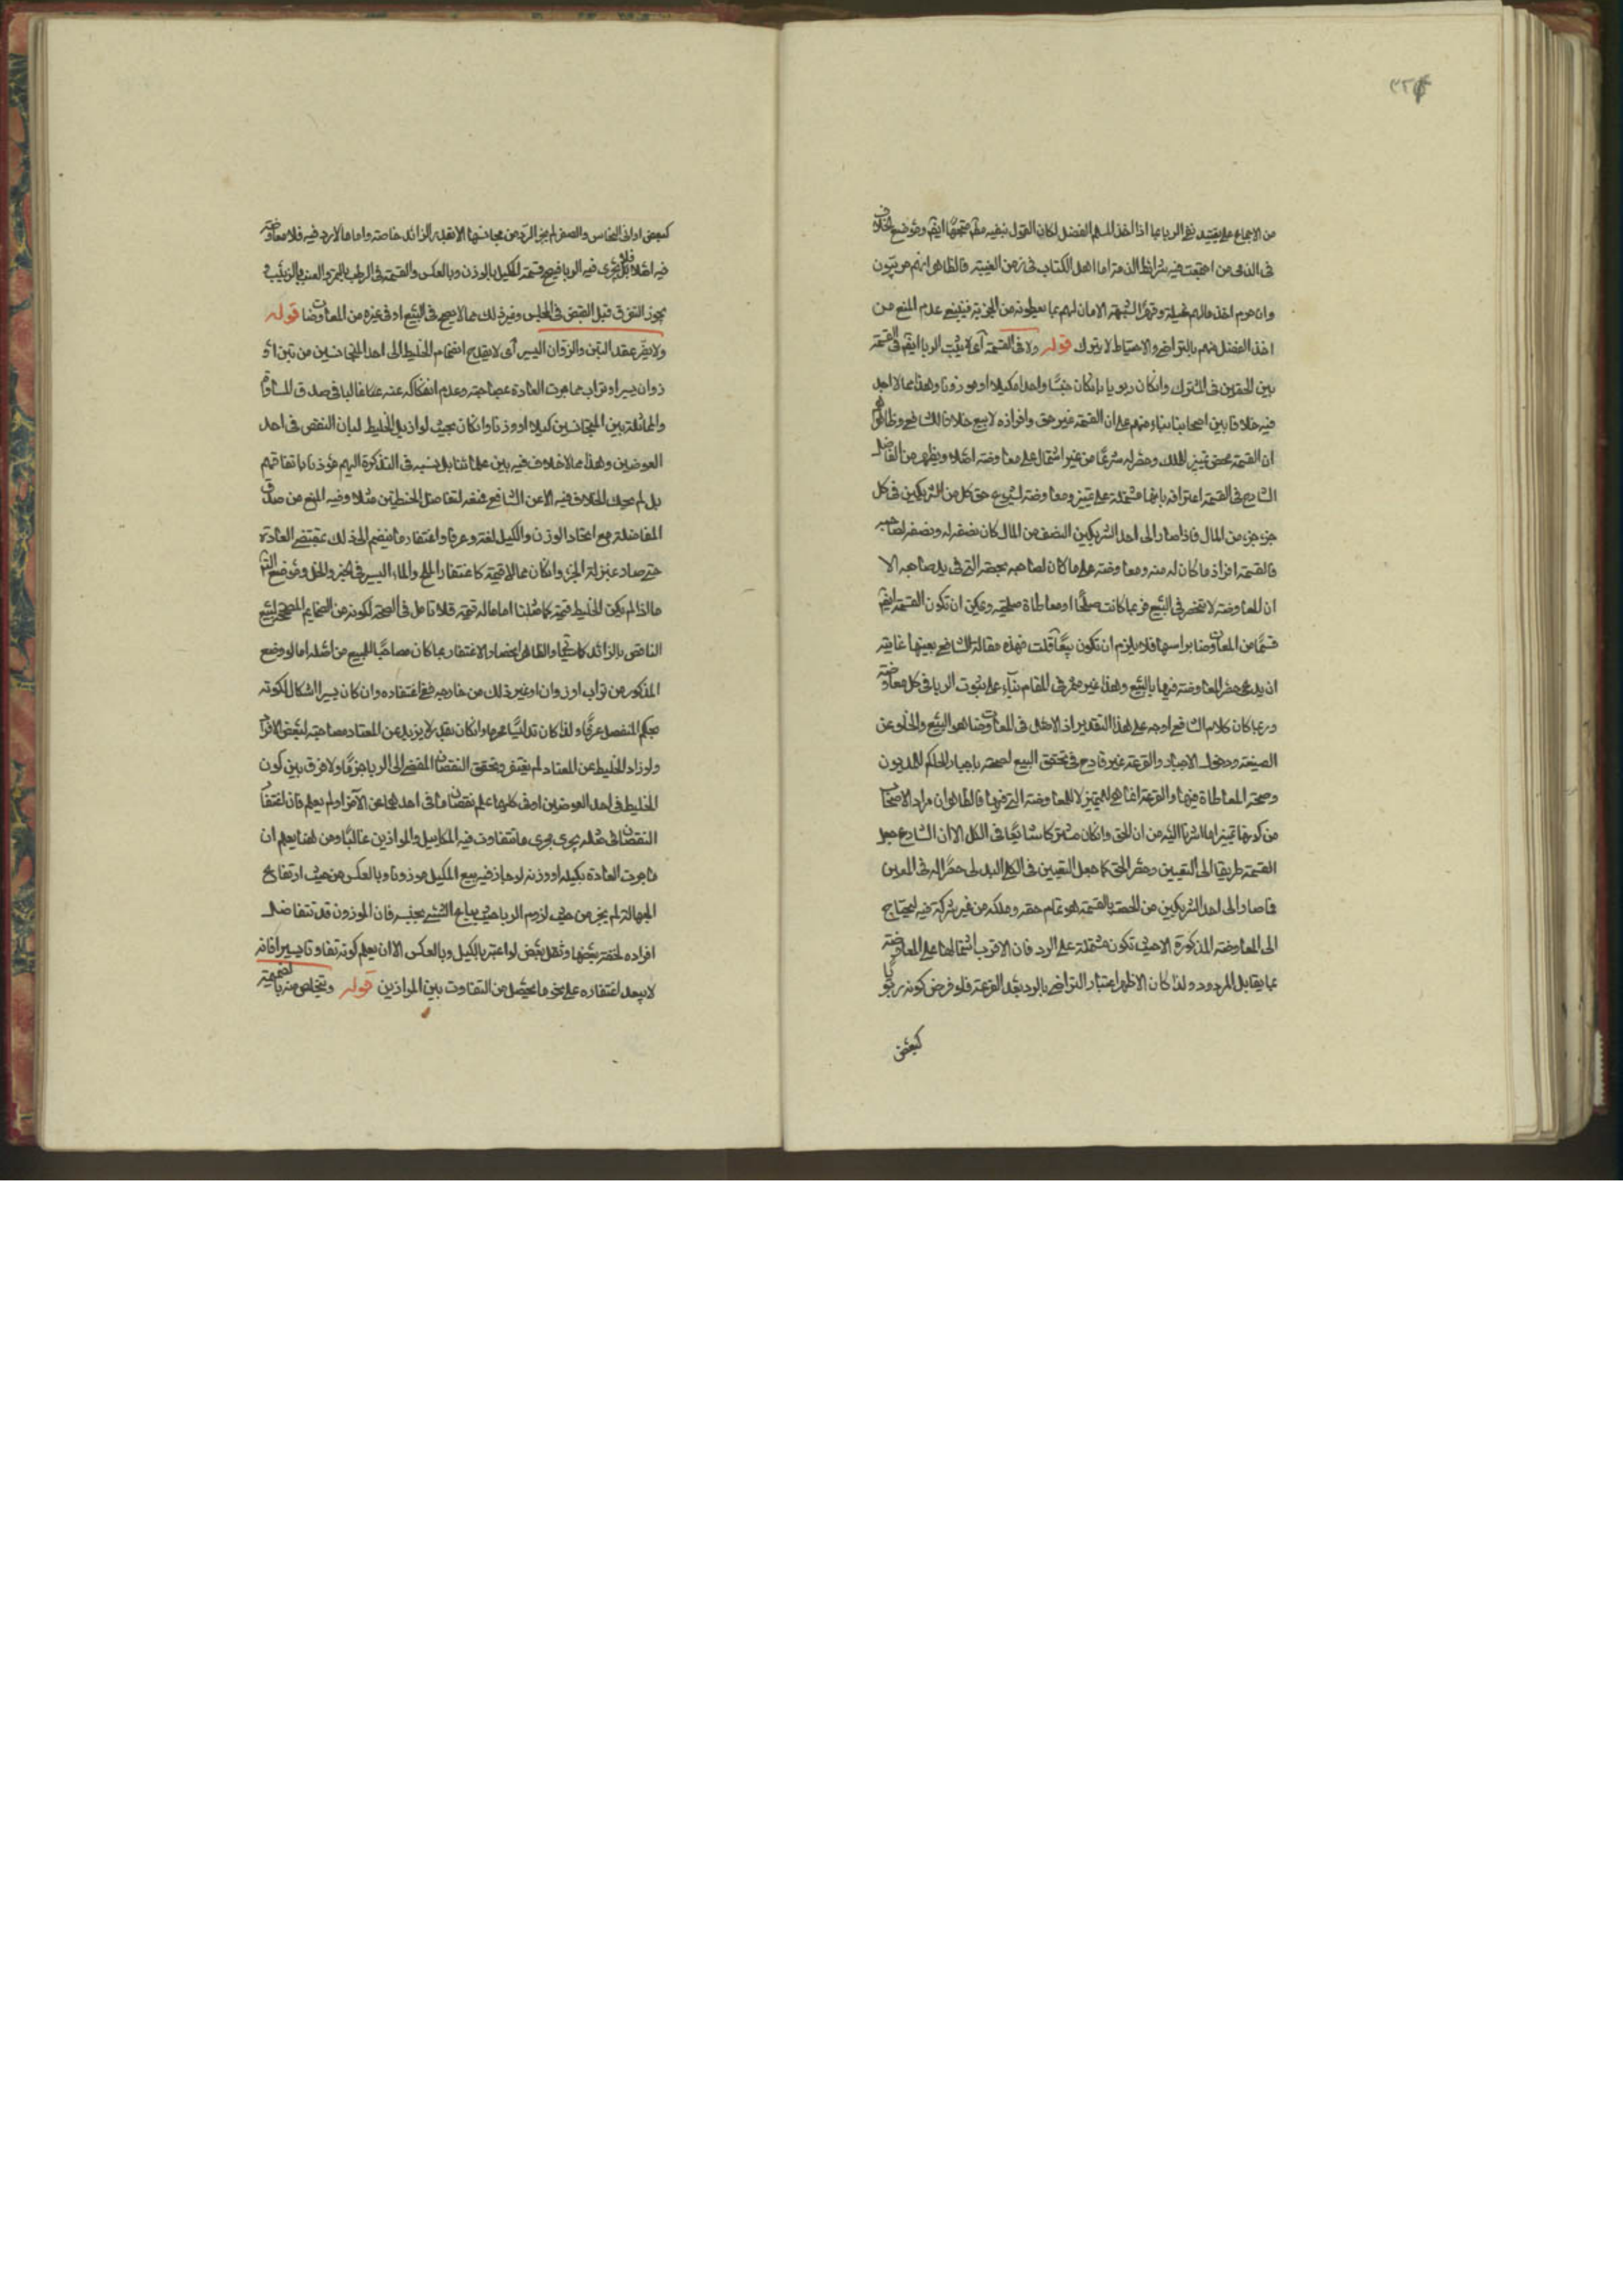 ٣٢٤
من الاجماع على تقييد نفي الربا بما اذا اخذ المسلم الفضل لكان القول بنفيه مطلقا متجها ايضا وموضع الخلاف
في الذمي من اجتمعت فيه شرائط الذمة اما اهل الكتاب في زمن الغيبة فالظاهر انهم حربيون
وان حرم اخذ مالهم غيلة وقهرا لشبهة الامان لهم بما يعطونه من الجزية فينبغي عدم المنع من
اخذ الفضل منهم بالتراضي والاحتياط لا يترك قوله ولا في القسمة أي لا يثبت الربا ايضا في القسمة
بين الحقين في المشترك وانكان ربويا بانكان جنسا واحدا مكيلا او موزونا وهذا مما لا اجد
فيه خلافا بين اصحابنا بناء منهم على ان القسمة تميز حق وافرازه لا بيع خلافا للشافعي وظاهرهم
ان القسمة محض تمييز للملك وحصر له شرعا من غير اشتمال على معاوضة اصلا ويظهر من الفاضل
الشارح في القسمة اعترافه بانها مشتملة على تميز ومعاوضة لشيوع حق كل من الشريكين في كل
جزء جزء من المال فاذا صار الى احد الشريكين النصف من المال كان نصفه له ونصفه لصاحبه
فالقسمة افراز ما كان له منه ومعاوضة على ما كان لصاحبه بحصته التي في يد صاحبه الا
ان المعاوضة لا تنحصر في البيع فربما كانت صلحا او معاطاة صلحية ويمكن ان تكون القسمة ايضا
قسما من المعاوضات براسها فلا يلزم ان تكون بيعا قلت فهذه مقالة الشافعي بعينها غايته
ان يدعي حصر المعاوضة فيها بالبيع وهذا غير مثمر في المقام بناء على ثبوت الربا في كل معاوضة
وربما كان كلام الشافعي اوجه على هذا التقدير اذ الاصل في المعاوضات هو البيع والخلو عن
الصيغة ودخول الاجبار والقرعة غير قادح في تحقق البيع لصحته باجبار الحاكم للمديون
وصحة المعاطاة فيها والقرعة انما هي للتمييز لا للمعاوضة التي فيها فالظاهر ان مراد الاصحاب
من كونها تميزا ما اشرنا اليه من ان الحق وانكان مشتركا شائعا في الكل الا ان الشارع جعل
القسمة طريقا الى التعيين وحصر الحق كما جعل التعيين في الكلي البدلي حصرا له في المعين
فما صار الى احد الشريكين من الحصة بالقسمة هو تمام حقه وملكه من غير شركة فيه ليحتاج
الى المعاوضة المذكورة الا حيث تكون مشتملة على الرد فان الاقرب اشتمالها على المعاوضة
بما يقابل المردود ولذا كان الاظهر اعتبار التراضي بالرد بعد القرعة فلو فرض كونه ربويا
كبعض
كبعض اواني النحاس والصفر لم يجز الرد من مجانسها الا بقدر الزائد خاصة واما ما لا رد فيه فلا معاوضة
فيه اصلا فلا يجري فيه الربا فيصح قسمة المكيل بالوزن وبالعكس والقسمة في الرطب بالتمر والعنب بالزبيب و
يجوز التفرق قبل القبض في المجلس وغير ذلك مما لا يصح في البيع او في غيره من المعاوضات قوله
ولا يضر عقد التبن والزوان اليسير أي لا يقدح انضمام الخليط الى احد المتجانسين من تبن او
زوان يسير او تراب مما جرت العادة بمصاحبته وعدم انفكاكه عنه غالبا في صدق المساواة
والمماثلة بين المتجانسين كيلا او وزنا وانكان بحيث لو ازيل الخليط لبان النقص في احد
العوضين وهذا مما لا خلاف فيه بين علمائنا بل نسبه في التذكرة اليهم مؤذنا باتفاقهم
بل لم يحك الخلاف فيه الا عن الشافعي فمنعه لتفاضل الحنطتين مثلا وفيه المنع من صدق
المفاضلة مع اتحاد الوزن والكيل لغة وعرفا واغتفار ما ينضم الى ذلك بمقتضى العادة
حتى صار بمنزلة الجزء وانكان مما لا قيمة له كاغتفار الملح والماء اليسير في الخبز والخل وموضع
ما اذا لم يكن للخليط قيمة كما مثلنا اما ما له قيمة فلا تامل في الصحة لكونه من الضمايم المصححة لبيع
الناقص بالزائد كما سيجئ والظاهر اختصاص الاغتفار بما كان مصاحبا للمبيع من اصله اما لو وضع
المذكور من تراب او زوان او غير ذلك من خارجه ففي اغتفاره وان كان يسيرا اشكال لكونه
بحكم المنفصل عرفا ولذا كان تدليسا محرما وانكان بقدر لا يزيد عن المعتاد مصاحبته لبعض الافراد
ولو زاد الخليط عن المعتاد لم يغتفر وتحقق النقصان المفضي الى الربا جزما ولا فرق بين كون
الخليط في احد العوضين او في كليهما علم نقصان ما في احدهما عن الآخر او لم يعلم فان اغتفار
النقصان في مثله يجري مجرى ما تتفاوت فيه المكاييل والموازين غالبا ومن هنا يعلم ان
ما جرت العادة بكيله او وزنه لو جاز فيه بيع المكيل موزونا وبالعكس من حيث ارتفاع
الجهالة لم يجز من حيث لزوم الربا حيث يباع الشيء بجنسه فان الموزون قد تتفاضل
افراده لخفة بعضها وثقل بعض لو اعتبر بالكيل وبالعكس الا ان يعلم كونه تفاوتا يسيرا فانه
لا يبعد اغتفاره على نحو ما يحصل من التفاوت بين الموازين قوله ويتخلص منه بالضميمة